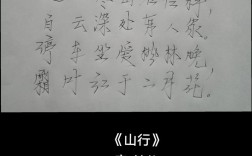 白云深处有人家,
停车坐爱枫林晚,
霜叶红于二月花。
《山行》